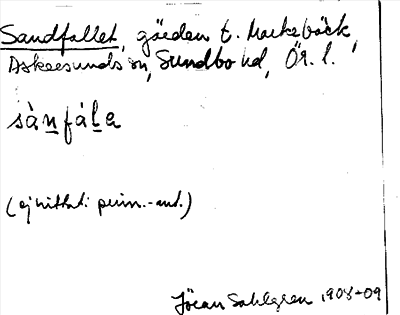 Sandfallet, gården t. Markebäck,
Askersunds sn, Sundbo hd, Ör. l.
sànfála
(ej hittat i prim.-ant.)
Jöran Sahlgren 1908-09